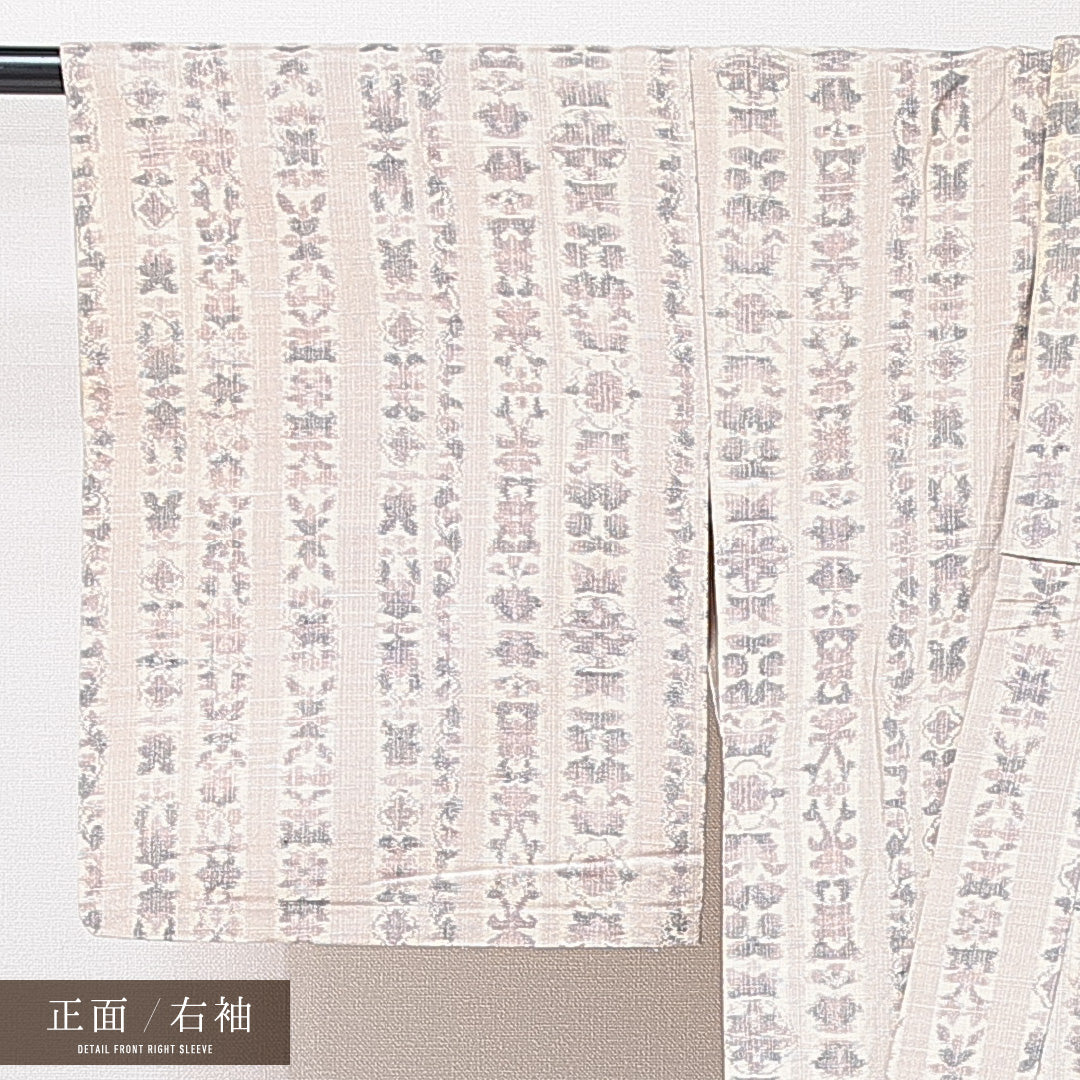 正面 / 右袖
DETAIL FRONT RIGHT SLEEVE